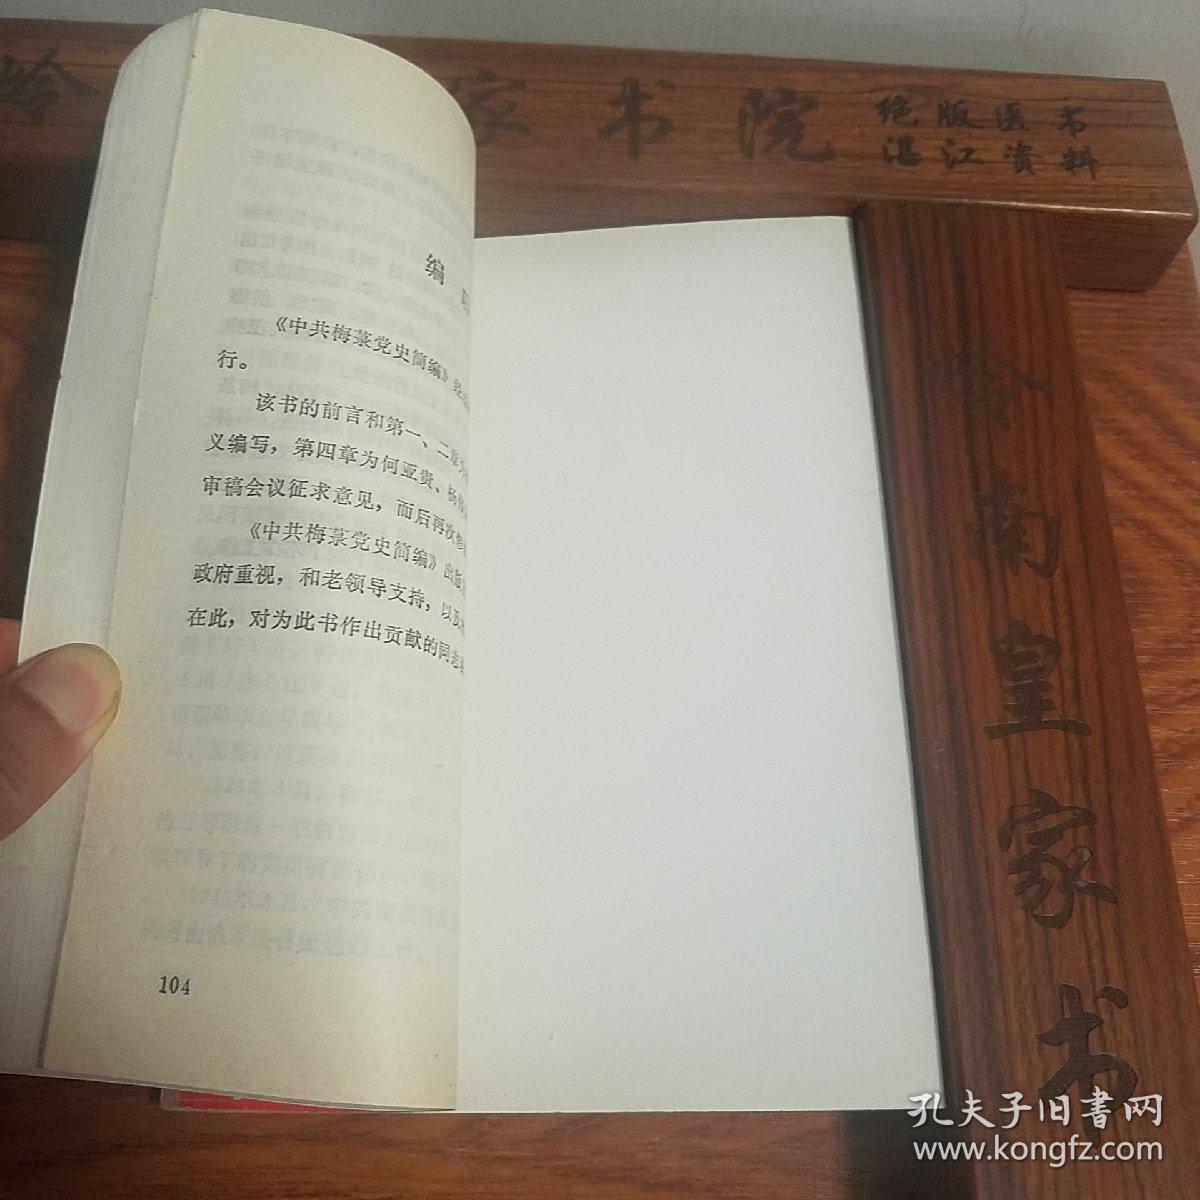 岭 家书院
绝版医书
湛江资料
编
《中共梅菉党史简编》
行。
该书的前言和第一、二章为
义编写，第四章为何亚贵、杨
审稿会议征求意见，而后再次修
《中共梅菉党史简编》出版
政府重视，和老领导支持，以及
在此，对为此书作出贡献的同志
104
岭南皇家书
孔夫子旧書网
www.kongfz.com